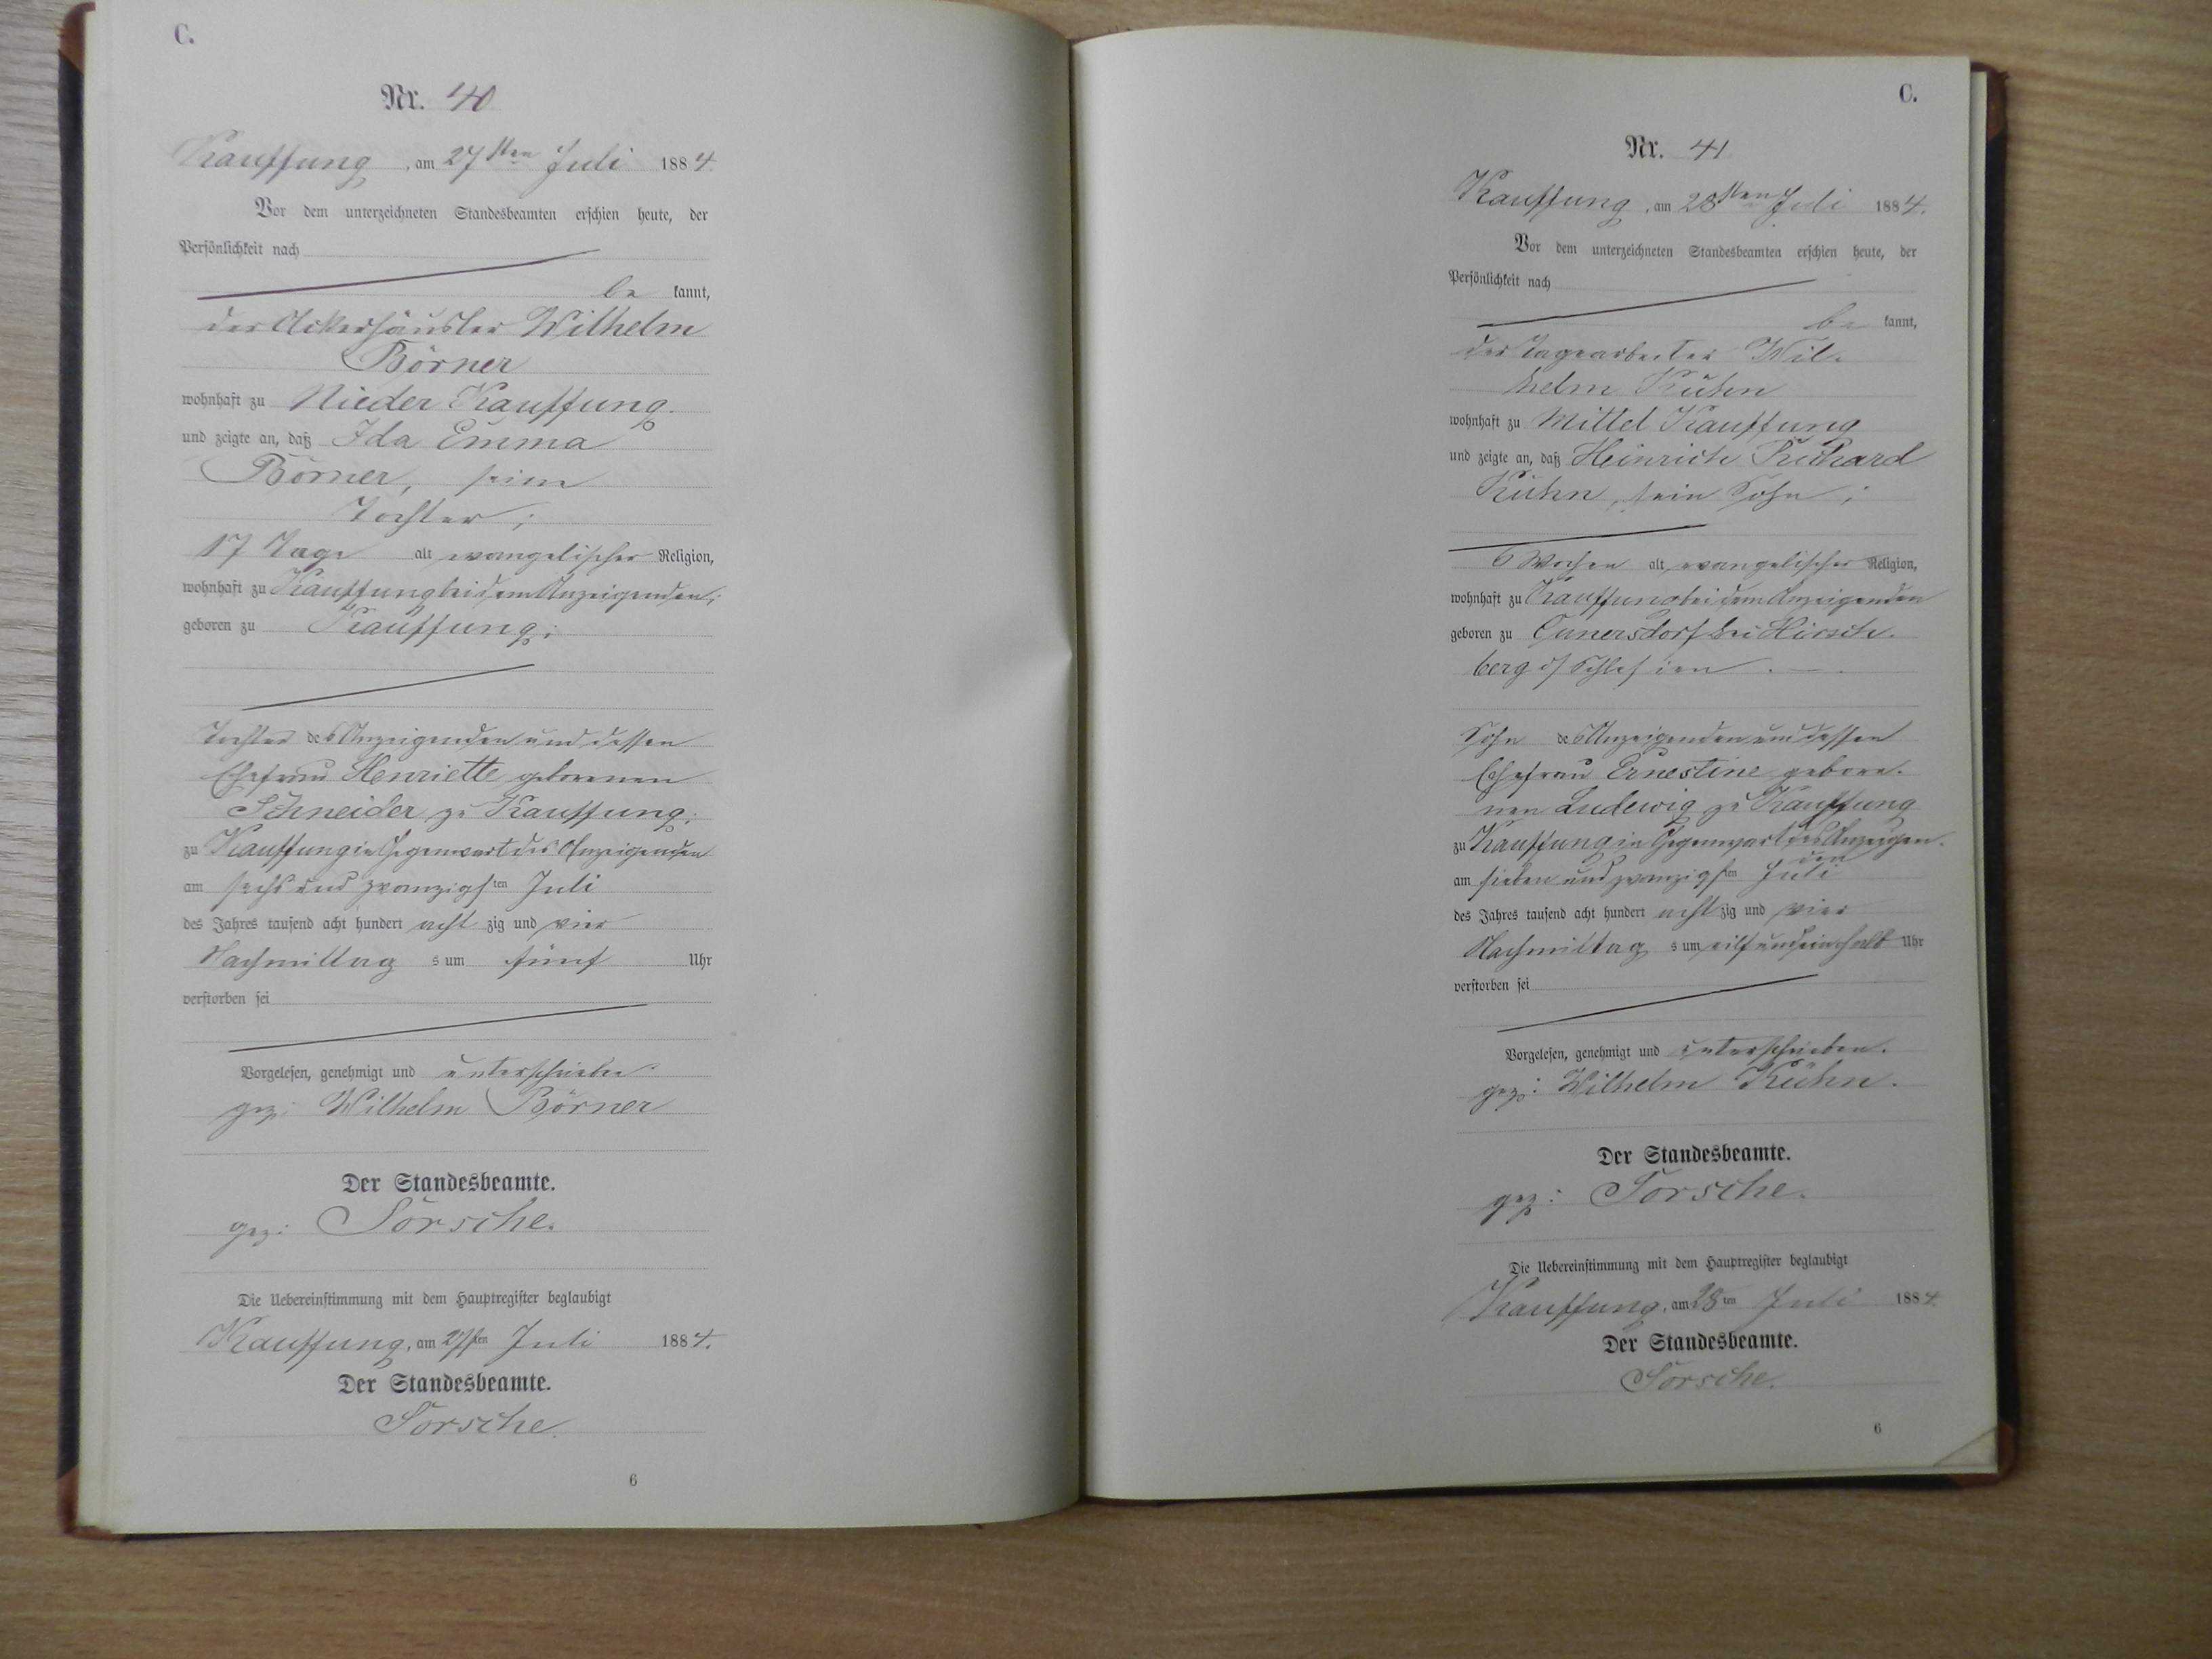 C.
Nr. 40
Kauffung, am 27sten Juli 1884
Vor dem unterzeichneten Standesbeamten erschien heute, der
Persönlichkeit nach
be kannt,
der Ackerhäusler Wilhelm
Börner
wohnhaft zu Nieder Kauffung.
und zeigte an, daß Ida Emma
Börner, seine
Tochter;
17 Tage alt evangelischer Religion,
wohnhaft zu Kauffung bei dem Anzeigenden;
geboren zu Kauffung;
Tochter des Anzeigenden und dessen
Ehefrau Henriette geborenen
Schneider zu Kauffung;
zu Kauffung in Gegenwart des Anzeigenden
am sechs und zwanzigsten Juli
des Jahres tausend acht hundert acht zig und vier
Nachmittag s um fünf Uhr
verstorben sei
Vorgelesen, genehmigt und unterschrieben
gez: Wilhelm Börner
Der Standesbeamte.
gez: Sorsche.
Die Uebereinstimmung mit dem Hauptregister beglaubigt
Kauffung, am 27sten Juli 1884.
Der Standesbeamte.
Sorsche.
6
C.
Nr. 41
Kauffung, am 28sten Juli 1884.
Vor dem unterzeichneten Standesbeamten erschien heute, der
Persönlichkeit nach
be kannt,
der Tagearbeiter Wil-
helm Kühn
wohnhaft zu Mittel Kauffung
und zeigte an, daß Heinrich Richard
Kühn, sein Sohn;
6 Wochen alt evangelischer Religion,
wohnhaft zu Kauffung bei dem Anzeigenden
geboren zu Cunersdorf bei Hirsch-
berg i/ Schlesien.
Sohn des Anzeigenden und dessen
Ehefrau Ernestine gebore-
nen Ludewig zu Kauffung
zu Kauffung in Gegenwart des Anzeigen-
den
am sieben und zwanzigsten Juli
des Jahres tausend acht hundert acht zig und vier
Nachmittag s um eilf und ein halb Uhr
verstorben sei
Vorgelesen, genehmigt und unterschrieben.
gez: Wilhelm Kühn.
Der Standesbeamte.
gez: Sorsche.
Die Uebereinstimmung mit dem Hauptregister beglaubigt
Kauffung, am 28ten Juli 1884.
Der Standesbeamte.
Sorsche.
6